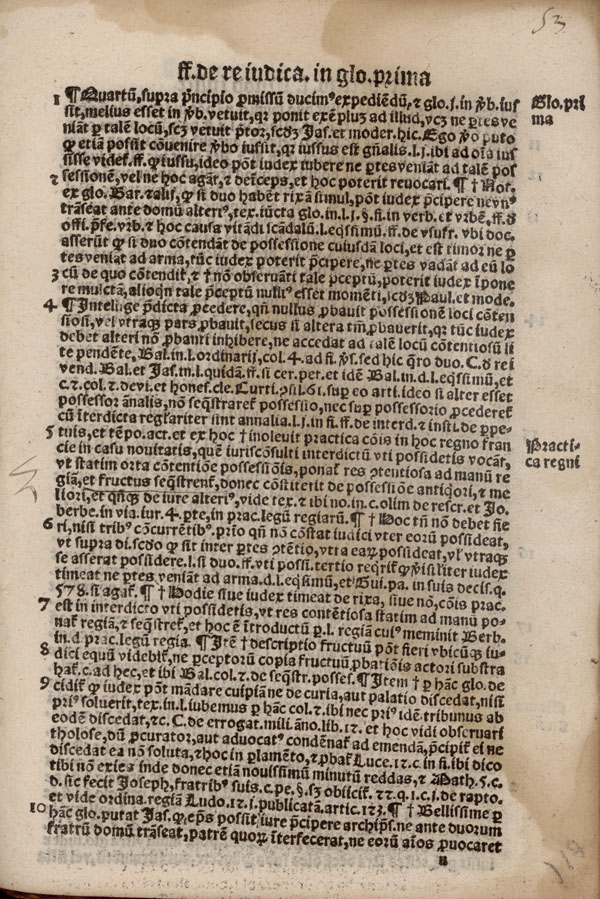 53
ff. de re iudica. in glo. prima
1 ¶ Quartū, supra prīcipio ꝓmissū ducimꝰ expediēdū, ⁊ glo. j. in ꝟb. ius
Glo. pri
ma
sit, melius esset in ꝟb. vetuit, qr ponit exēpluꝫ ad illud, vcꝫ ne ꝑtes ve
niāt ꝑ talē locū, scꝫ vetuit p̄tor, scdꝫ Jas. et moder. hic. Ego ꝟo puto
ꝙ etiā possit cōuenire ꝟbo iussit, qr iussus est gn̄alis. l. j. ibi ad oīa ius
sisse videt. ff. ꝙ iussu, ideo pōt iudex iubere ne ꝑtes veniāt ad talē pos
sessionē, vel ne hoc agāt, ⁊ deīceps, et hoc poterit reuocari. ¶ † Not.
2 ex glo. Bar. ⁊ alij, ꝙ si duo habēt rixā simul, pōt iudex p̄cipere ne vnꝰ
trāseat ante domū alteriꝰ, tex. iūcta glo. in. l. j. §. si. in verb. et vrbē, ff. d
offi. p̄fe. vrb. ⁊ hoc causa vitādi scādalū. l. eqssimū. ff. de vsufr. vbi doc.
asserūt ꝙ si duo cōtendāt de possessione cuiusdā loci, et est timor ne ꝑ
tes veniāt ad arma, tūc iudex poterit p̄cipere, ne ꝑtes vadāt ad eū lo
3 cū de quo cōtendit, ⁊ † nō obseruāti tale p̄ceptū, poterit iudex īpone
re mulctā, alioqn tale p̄ceptū nulliꝰ esset momēti, scdꝫ Paul. et mode.
4 ¶ Intellige p̄dicta ꝓcedere, qn̄ nullus ꝓbauit possessionē loci cōten
siosi, vel vtraqꝫ pars ꝓbauit, secus si altera tm̄ ꝓbauerit, qr tūc iudex
debet alteri nō ꝓbanti inhibere, ne accedat ad talē locū cōtentiosū li
te pendēte, Bal. in. l. ordinarij, col. 4. ad fi. ꝟs. sed hic q̄ro duo. C. d rei
vend. Bal. et Jas. in. l. quidā. ff. si cer. pet. et idē Bal. in. d. l. eqssimū, et
c. ⁊. col. ⁊. de vi. et hones. cle. Curti. ꝯsil. 61. suꝑ eo arti. ideo si alter esset
possessor ānalis, nō seq̄straret possessio, nec suꝑ possessorio ꝓcederet
cū īterdicta regl̄ariter sint annalia. l. j. in fi. ff. de interd. ⁊ insti. de ꝑpe-
5 tuis, et tēpo. act. et ex hoc † inoleuit practica cōis in hoc regno fran
Practi-
ca regni
cie in casu nouitatis, quē iuriscōsulti interdictū vti possidetis vocāt,
vt statim orta cōtentiōe possessiōis, ponat res ꝯtentiosa ad manū re
giā, et fructus seq̄strent, donec cōstiterit de possessiōe antiqori, ⁊ me
liori, et qn̄qꝫ de iure alteriꝰ, vide tex. ⁊ ibi no. in. c. olim de rescr. et Jo.
berbe. in via. iur. 4. ꝑte, in prac. legū regiarū. ¶ † Hoc tn̄ nō debet fie
6 ri, nisi tribꝰ cōcurrētibꝰ. prīo qn̄ nō cōstat iudici vter eorū possideat,
vt supra di. scdo ꝙ sit inter ꝑtes ꝯtētio, vtra earꝫ possideat, vl̄ vtraqꝫ
se asserat possidere. l. si duo. ff. vti possi. tertio reqrit ꝙ ꝟisil̄iter iudex
timeat ne ꝑtes veniāt ad arma. d. l. eqssimū, et Gui. pa. in suis decis. q.
578. si agat. ¶ † Hodie siue iudex timeat de rixa, siue nō, cōis prac.
7 est in interdicto vti possidetis, vt res contētiosa statim ad manū po-
nat regiā, ⁊ seq̄stret, et hoc ē ītroductū ꝑ. l. regiā cuiꝰ meminit Berb.
in. d. prac. legū regia. ¶ Itē † descriptio fructuū pōt fieri vbicūqꝫ iu-
8 dici equū videbit, ne ꝑceptorū copia fructuū ꝓbatiōis actori substra
hat. c. ad hec, et ibi Bal. col. ⁊. de seq̄str. posses. ¶ Item † ꝑ hāc glo. de
9 cidit ꝙ iudex pōt mādare cuipiā ne de curia, aut palatio discedat, nisi
priꝰ soluerit, tex. in. l. iubemus ꝑ hāc col. ⁊ ibi nec priꝰ idē tribunus ab
eodē discedat, ⁊c. C. de errogat. mili. āno. lib. 12. et hoc vidi obseruari
tholose, dū ꝓcurator, aut aduocatꝰ condēnat ad emendā, p̄cipit ei ne
discedat ea nō soluta, ⁊ hoc in ꝑlamēto, ⁊ ꝓbat Luce. 12. c. in fi. ibi dico
tibi nō exies inde donec etiā nouissimū minutū reddas, ⁊ Math. 5. c.
d. sic fecit Joseph, fratribꝰ suis. c. pe. §. sꝫ obiicit. 22. q. 1. c. j. de rapto.
et vide ordina. regiā Ludo. 12. j. publicatā. artic. 123. ¶ † Bellissime ꝑ
10 hāc glo. putat Jas. ꝙ ep̄s possit iure p̄cipere archip̄s. ne ante duorum
fratrū domū trāseat, patrē quorꝫ īterfecerat, ne eorū aīos ꝓuocaret
u